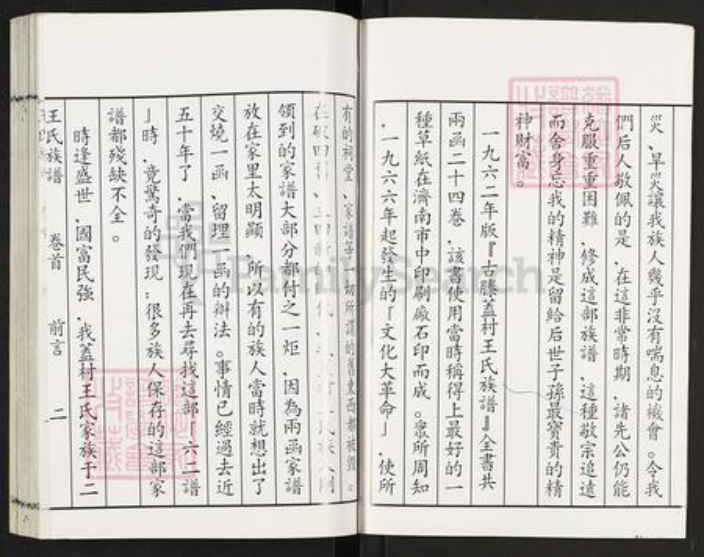 災、旱災讓我族人幾乎没有喘息的機會。令我
們后人敬佩的是、在這非常時期、諸先公仍能
克服重重困難、修成這部族譜、這種敬宗追遠
而舍身忘我的精神是留給后世子孫最寶貴的精
神財富。
一九六二年版『古滕蓋村王氏族譜』全書共
兩函二十四卷、該書使用當時稱得上最好的一
種草紙在濟南市中印刷廠石印而成。衆所周知
、一九六六年起發生的「文化大革命」、使所
有的祠堂、家譜等一切所謂的舊東西都被毁。
領到的家譜大部分都付之一炬、因為兩函家譜
放在家里太明顯、所以有的族人當時就想出了
交燒一函、留埋一函的辦法。事情已經過去近
五十年了、當我們現在再去尋找這部「六二譜
」時、竟驚奇的發現：很多族人保存的這部家
譜都殘缺不全。
時逢盛世、國富民強、我蓋村王氏家族于二
王氏族譜 卷首 前言 二
FamilySearch